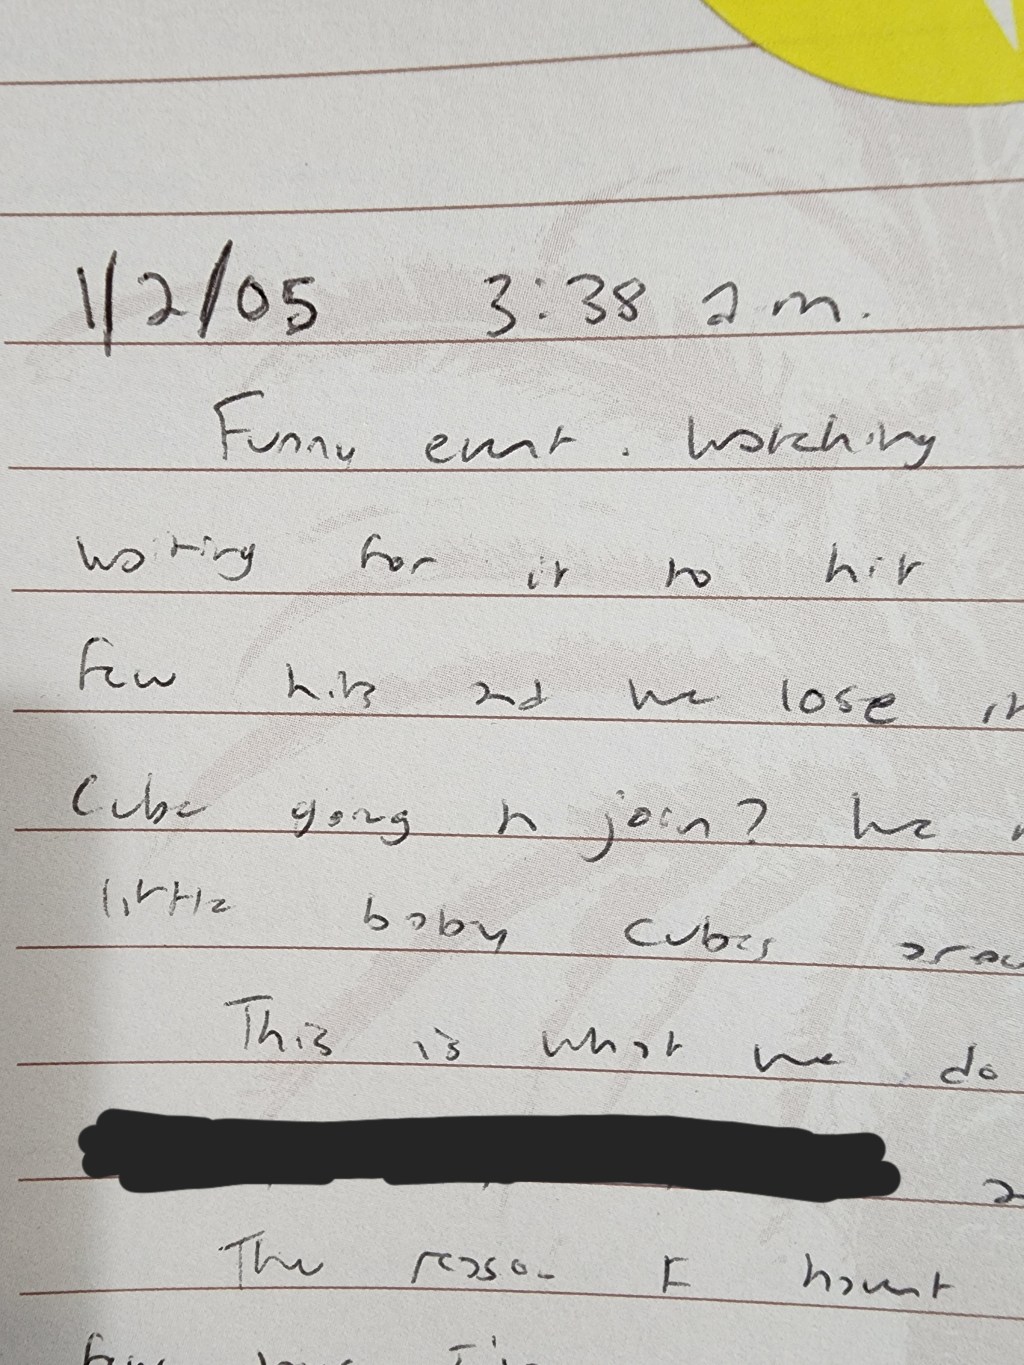 1/2/05 3:38 am.
Funny event. Watching
waiting for it to hit
few hits and we lose it
Cube going to join? We
little baby cubes arou
This is what we do
The reason I havent
few days I'